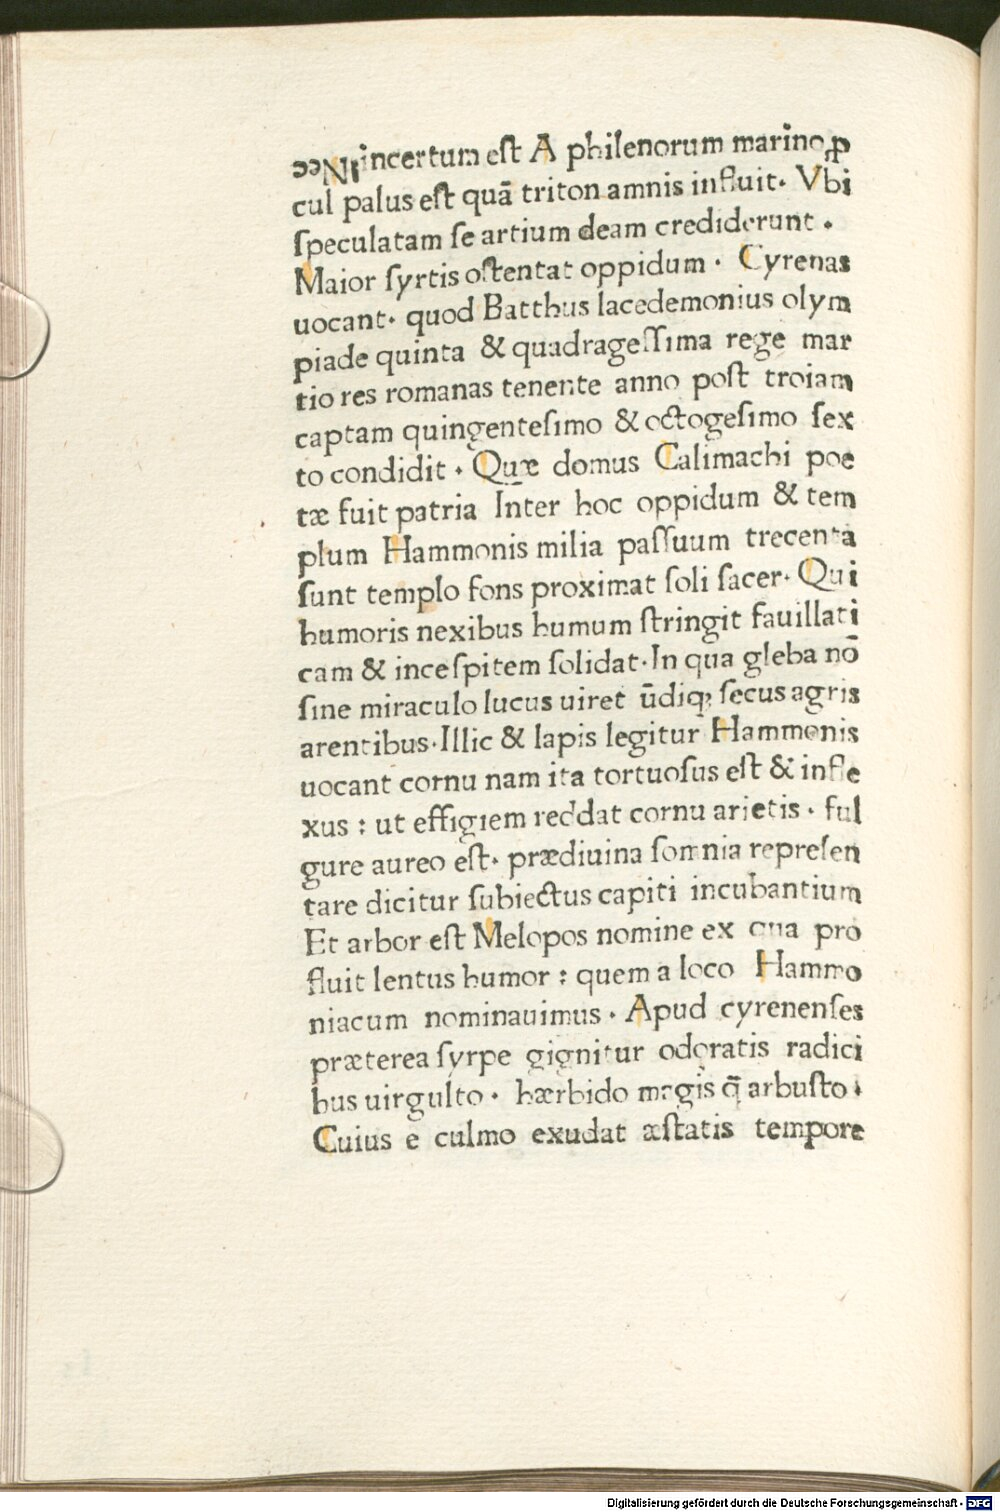 incertum est A philenorum marino ꝓ
cul palus est quā triton amnis influit. Vbi
speculatam se artium deam crediderunt .
Maior syrtis ostentat oppidum . Cyrenas
uocant. quod Batthus lacedemonius olym
piade quinta & quadragessima rege mar
tio res romanas tenente anno post troiam
captam quingentesimo & octogesimo sex
to condidit . Quæ domus Calimachi poe
tæ fuit patria Inter hoc oppidum & tem
plum Hammonis milia passuum trecenta
sunt templo fons proximat soli sacer. Qui
humoris nexibus humum stringit fauillati
cam & incespitem solidat. In qua gleba nō
sine miraculo lucus uiret ūdiqꝫ secus agris
arentibus. Illic & lapis legitur Hammonis
uocant cornu nam ita tortuosus est & infle
xus : ut effigiem reddat cornu arietis . ful
gure aureo est. prædiuina somnia represen
tare dicitur subiectus capiti incubantium
Et arbor est Melopos nomine ex qua pro
fluit lentus humor : quem a loco Hammo
niacum nominauimus . Apud cyrenenses
præterea syrpe gignitur odoratis radici
bus uirgulto . hærbido magis q̄ arbusto .
Cuius e culmo exudat æstatis tempore
Digitalisierung gefördert durch die Deutsche Forschungsgemeinschaft - DFG